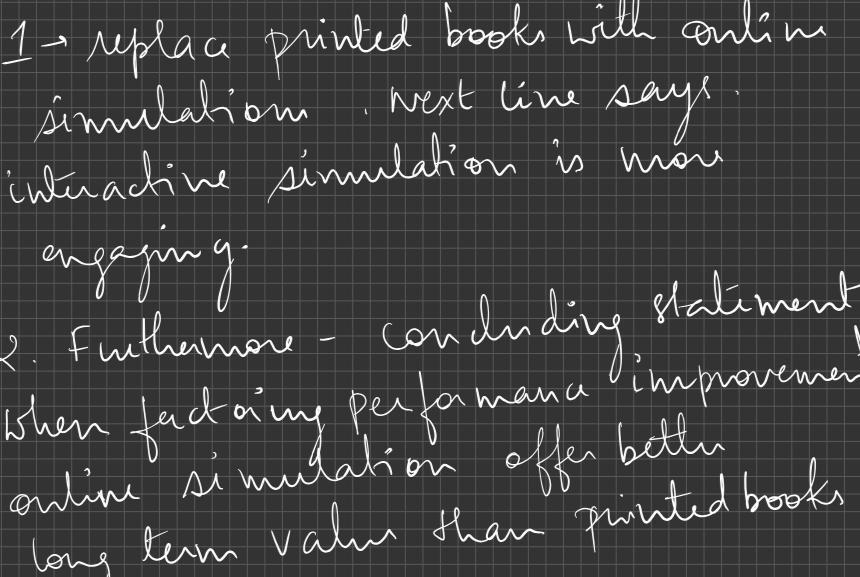 1→ replace printed books with online
simulation. Next line says.
interactive simulation is more
engaging.
2. Furthermore - concluding statement
When factoring performance improvemen
online simulation offer better
long term value than printed books